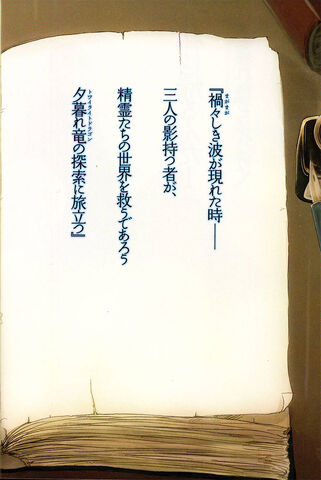 『禍々しき波が現れた時――
三人の影持つ者が、
精霊たちの世界を救うであろう
夕暮れ竜の探索に旅立つ』